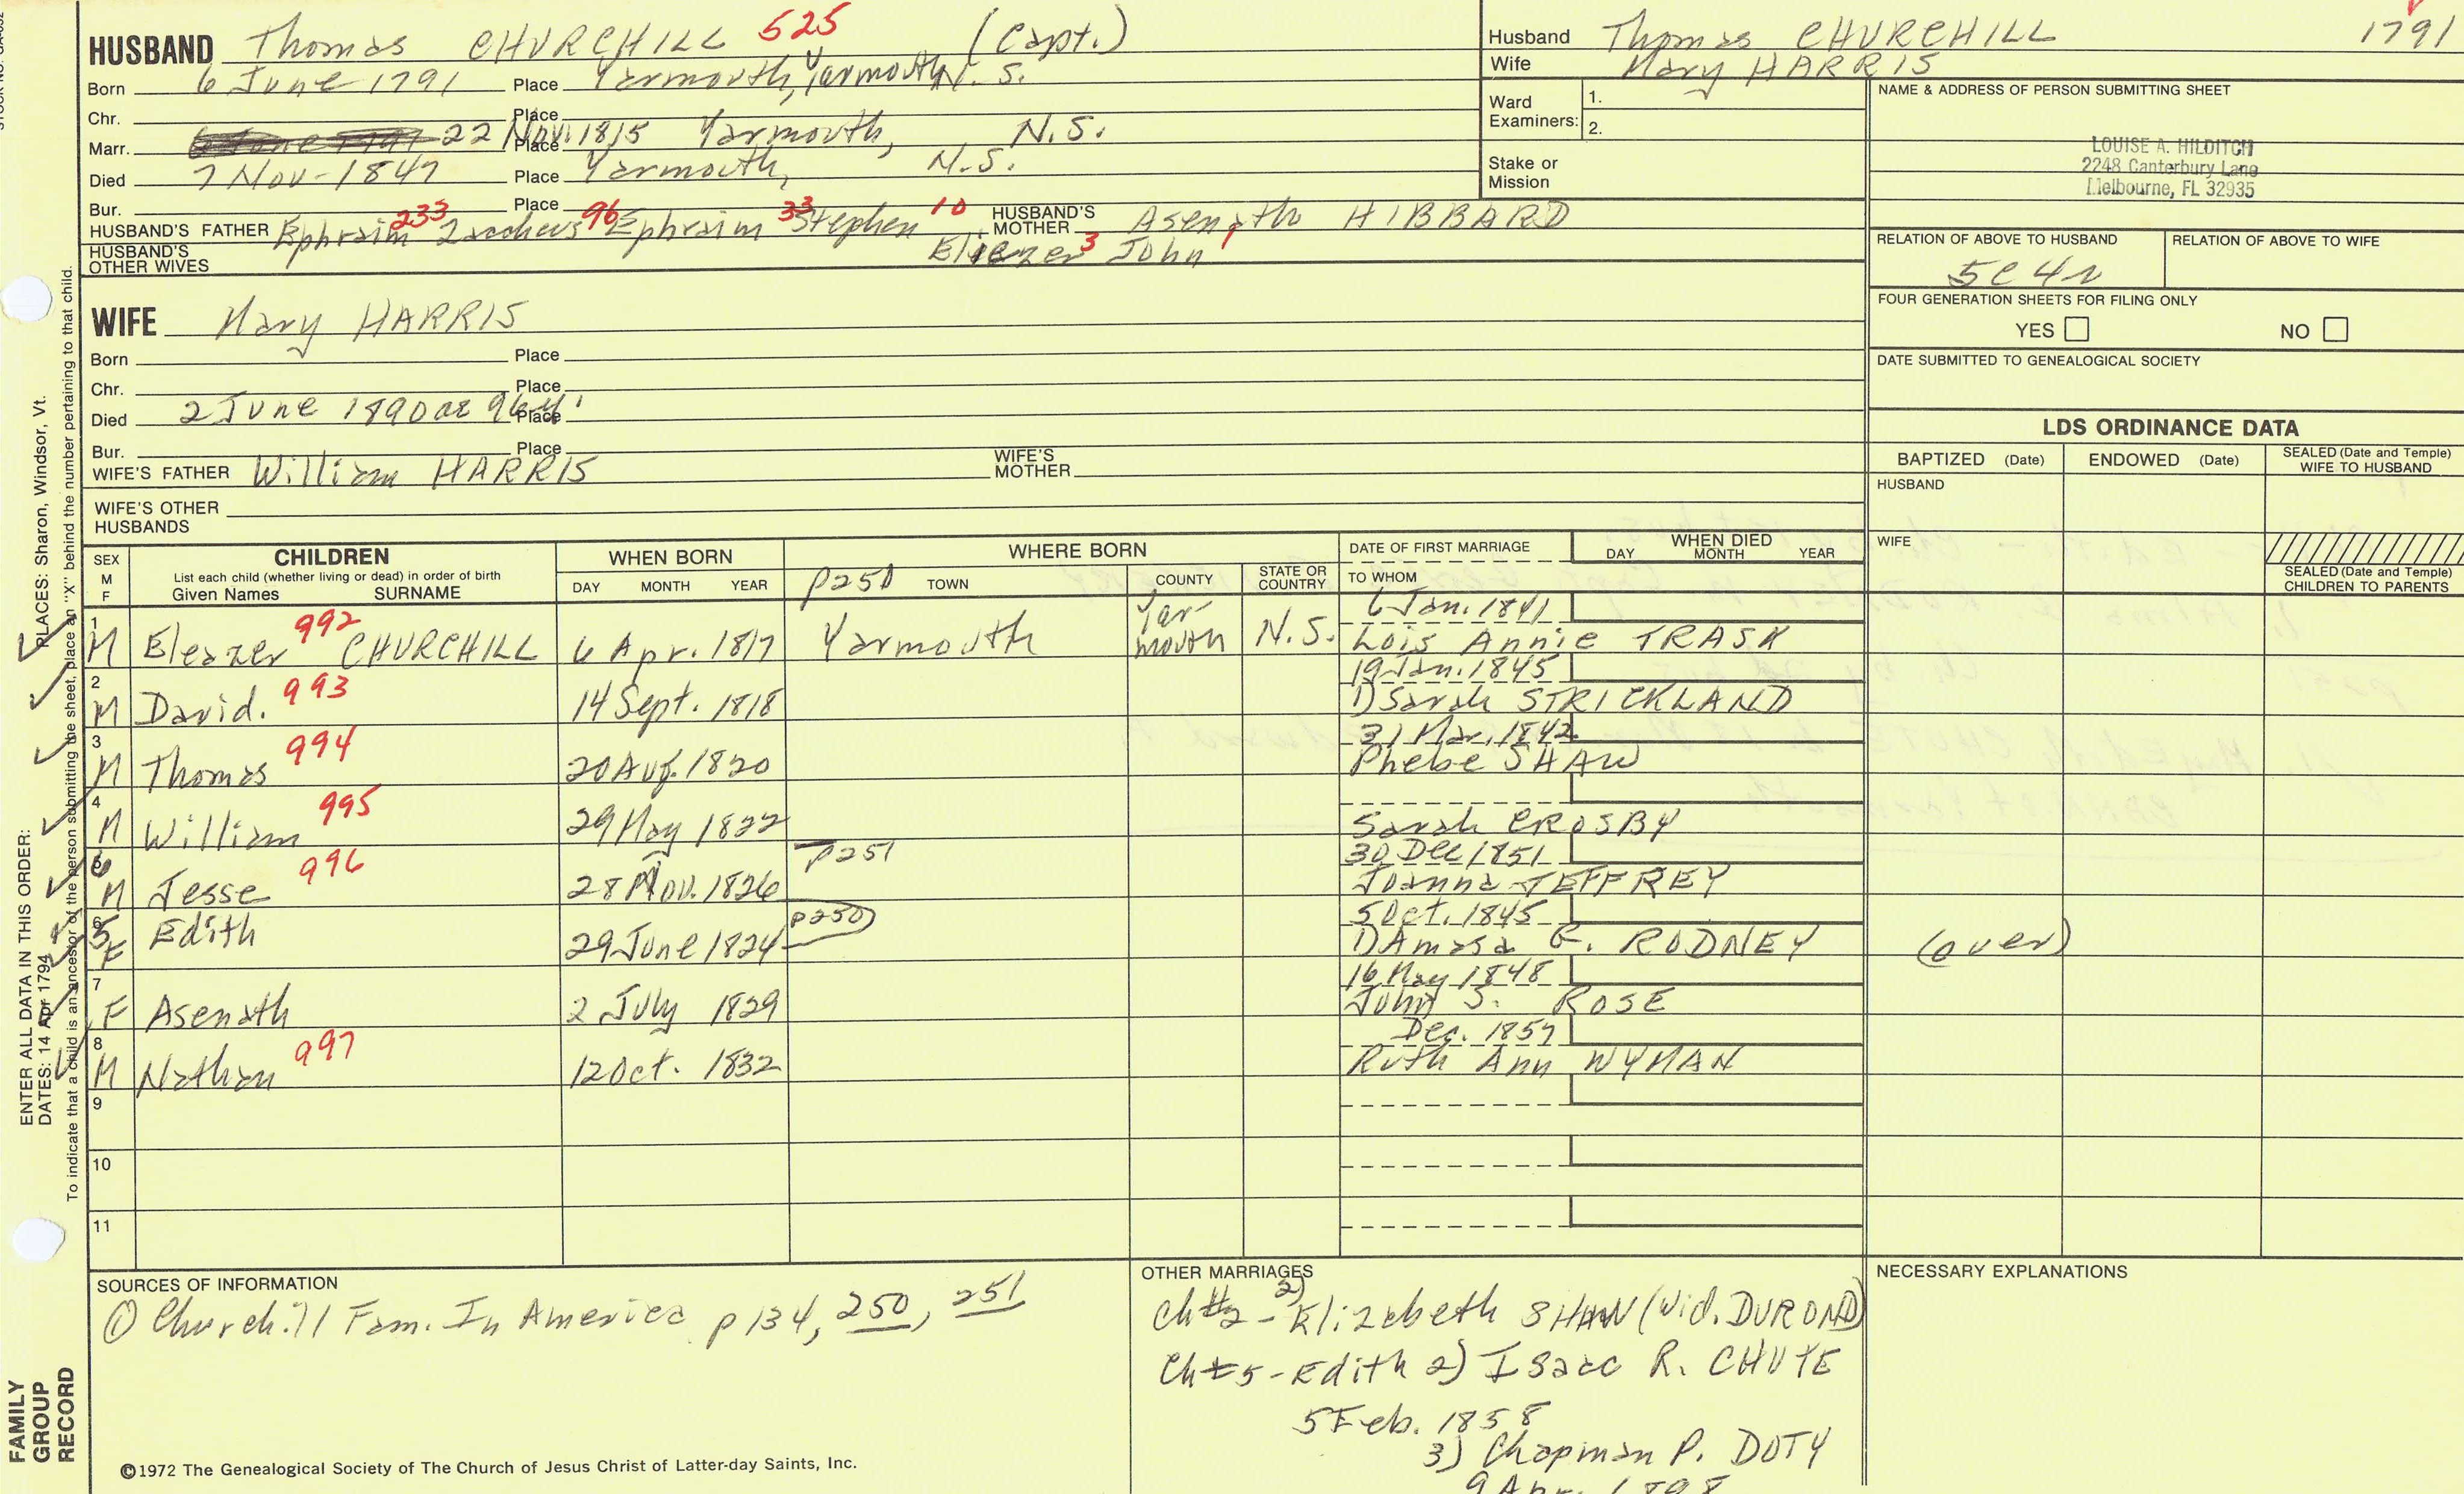 HUSBAND Thomas CHURCHILL 525 (Capt.)
Born 6 June 1791 Place Yarmouth, Yarmouth, N. S.
Chr. Place
Marr. 22 Nov. 1815 Place Yarmouth, N.S.
Died 7 Nov - 1847 Place Yarmouth, N.S.
Bur. Place
HUSBAND'S FATHER Ephraim 233 Zaccheus 96 Ephraim 33 Stephen 10 HUSBAND'S MOTHER Asenath HIBBARD
Eliezer 3 John 1
HUSBAND'S OTHER WIVES
Husband Thomas CHURCHILL 1791
Wife Mary HARRIS
Ward Examiners: 1.
2.
Stake or Mission
NAME & ADDRESS OF PERSON SUBMITTING SHEET
LOUISE A. HILDITCH
2248 Canterbury Lane
Melbourne, FL 32935
RELATION OF ABOVE TO HUSBAND RELATION OF ABOVE TO WIFE
5C4R
FOUR GENERATION SHEETS FOR FILING ONLY
YES NO
DATE SUBMITTED TO GENEALOGICAL SOCIETY
WIFE Mary HARRIS
Born Place
Chr. Place
Died 2 June 1890 ae 96y. Place
Bur. Place
WIFE'S FATHER William HARRIS WIFE'S MOTHER
WIFE'S OTHER HUSBANDS
LDS ORDINANCE DATA
BAPTIZED (Date) ENDOWED (Date) SEALED (Date and Temple) WIFE TO HUSBAND
HUSBAND
WIFE
SEALED (Date and Temple) CHILDREN TO PARENTS
SEX M F CHILDREN
List each child (whether living or dead) in order of birth
Given Names SURNAME
WHEN BORN
DAY MONTH YEAR
WHERE BORN
p250 TOWN COUNTY STATE OR COUNTRY
DATE OF FIRST MARRIAGE
TO WHOM
WHEN DIED
DAY MONTH YEAR
1 M Eleazer 992 CHURCHILL 6 Apr. 1817 Yarmouth Yar-mouth N.S. 6 Jan. 1841
Lois Annie TRASK
2 M David. 993 14 Sept. 1818 19 Jan. 1845
1) Sarah STRICKLAND
3 M Thomas 994 20 Aug. 1820 31 Mar. 1842
Phebe SHAW
4 M William 995 29 May 1822
Sarah CROSBY
6 M Jesse 996 28 Nov. 1826 p251 30 Dec 1851
Joanna JEFFREY
6 5 F Edith 29 June 1824 p250 5 Oct. 1845
1) Amasa E. RODNEY (over)
7 F Asenath 2 July 1829 16 May 1848
John S. ROSE
8 M Nathan 997 12 Oct. 1832 Dec. 1857
Ruth Ann WYMAN
9
10
11
SOURCES OF INFORMATION
① Churchill Fam. In America p 134, 250, 251
OTHER MARRIAGES
Ch #2 - 2) Elizabeth SHAW (Wid. DUROND)
Ch #5 - Edith 2) Isaac R. CHUTE
5 Feb. 1858
3) Chapman P. DOTY
9 Apr. 1898
NECESSARY EXPLANATIONS
©1972 The Genealogical Society of The Church of Jesus Christ of Latter-day Saints, Inc.
ENTER ALL DATA IN THIS ORDER: PLACES: Sharon, Windsor, Vt.
DATES: 14 Apr 1794
To indicate that a child is an ancestor of the person submitting the sheet, place an "X" behind the number pertaining to that child.
FAMILY GROUP RECORD